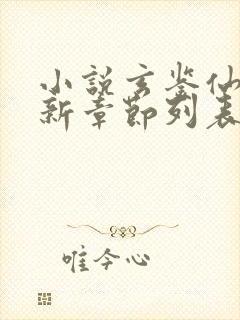 小说玄鉴仙
新章节列表
唯今心